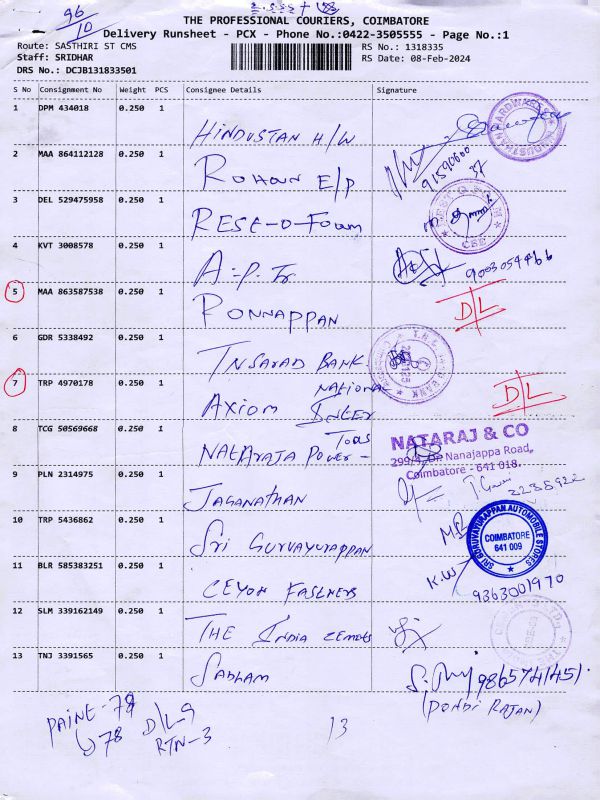 96
10
THE PROFESSIONAL COURIERS, COIMBATORE
Delivery Runsheet - PCX - Phone No.:0422-3505555 - Page No.:1
Route: SASTHIRI ST CMS
RS No.: 1318335
Staff: SRIDHAR
RS Date: 08-Feb-2024
DRS No.: DCJB131833501
S No Consignment No Weight PCS Consignee Details Signature
1 DPM 434018 0.250 1 HINDUSTAN H/W
2 MAA 864112128 0.250 1 E/P
91590600
37
3 DEL 529475958 0.250 1 REST-O-FOAM
4 KVT 3008578 0.250 1 A.P. Tr
9003054466
5 MAA 863587538 0.250 1 PONNAPPAN D/L
6 GDR 5338492 0.250 1 BANK
7 TRP 4970178 0.250 1 AXIOM NATIONAL D/L
8 TCG 50569668 0.250 1 NATARAJA POWER - TOOLS
NATARAJ & CO
Dr. Nanajappa Road,
Coimbatore - 641 018.
9 PLN 2314975 0.250 1 JAGANATHAN
3238922
10 TRP 5436862 0.250 1 SRI GURVAYURAPPAN
SRI GURUVAYURAPPAN AUTOMOBILE STORES
COIMBATORE
641 009
11 BLR 585383251 0.250 1 CEYON FASLNERS
K.W
9363001970
12 SLM 339162149 0.250 1 THE INDIA CEMENTS
13 TNJ 3391565 0.250 1 SADHAM
9865741451.
(PONDI RAJAN)
PAINT-78
78
D/L-9
RTN-3
13